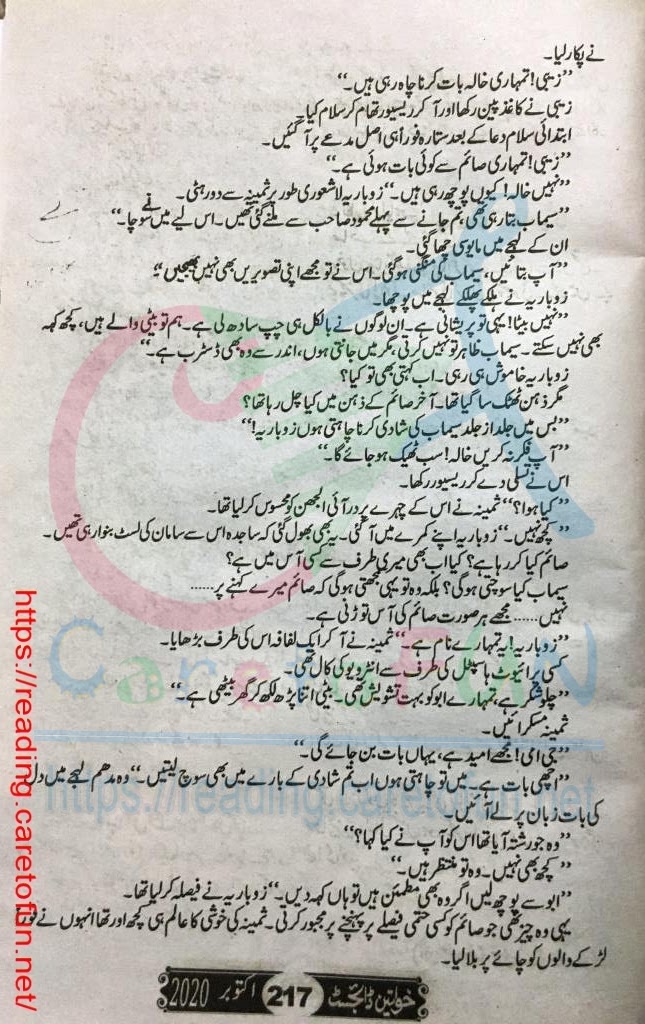 نے پکار لیا۔
’’زیبی! تمہاری خالہ بات کرنا چاہ رہی ہیں۔‘‘
زیبی نے کاغذ پین رکھا اور آ کر ریسیور تھام کر سلام کیا۔
ابتدائی سلام دعا کے بعد ستارہ فوراً ہی اصل مدعے پر آ گئیں۔
’’زیبی! تمہاری صائم سے کوئی بات ہوئی ہے۔‘‘
’’نہیں خالہ! کیوں پوچھ رہی ہیں۔‘‘ زوباریہ لاشعوری طور پر ثمینہ سے دور ہٹی۔
’’سیماب بتا رہی تھی، تم جانے سے پہلے محمود صاحب سے ملنے گئی تھیں۔ اس لیے میں نے سوچا۔‘‘
ان کے لہجے میں مایوسی چھا گئی۔
’’آپ بتائیں، سیماب کی منگنی ہوگئی۔ اس نے تو مجھے اپنی تصویریں بھی نہیں بھیجیں۔‘‘
زوباریہ نے ہلکے پھلکے لہجے میں پوچھا۔
’’نہیں بیٹا! یہی تو پریشانی ہے۔ ان لوگوں نے بالکل ہی چپ سادھ لی ہے۔ ہم تو بیٹی والے ہیں، کچھ کہہ
بھی نہیں سکتے۔ سیماب ظاہر تو نہیں کرتی، مگر میں جانتی ہوں، اندر سے وہ بھی ڈسٹرب ہے۔‘‘
زوباریہ خاموش ہی رہی۔ اب کہتی بھی تو کیا؟
مگر ذہن ٹھٹک سا گیا تھا۔ آخر صائم کے ذہن میں کیا چل رہا تھا؟
’’بس میں جلد از جلد سیماب کی شادی کرنا چاہتی ہوں زوباریہ!‘‘
’’آپ فکر نہ کریں خالہ! سب ٹھیک ہو جائے گا۔‘‘
اس نے تسلی دے کر ریسیور رکھا۔
’’کیا ہوا؟‘‘ ثمینہ نے اس کے چہرے پر در آئی الجھن کو محسوس کر لیا تھا۔
’’کچھ نہیں۔‘‘ زوباریہ اپنے کمرے میں آ گئی۔ یہ بھی بھول گئی کہ ساجدہ اس سے سامان کی لسٹ بنوا رہی تھیں۔
صائم کیا کر رہا ہے؟ کیا اب بھی میری طرف سے کسی آس میں ہے؟
سیماب کیا سوچتی ہوگی؟ بلکہ وہ تو یہی سمجھتی ہوگی کہ صائم میرے کہنے پر......
نہیں...... مجھے ہر صورت صائم کی آس توڑنی ہے۔
’’زوباریہ! یہ تمہارے نام ہے۔‘‘ ثمینہ نے آ کر ایک لفافہ اس کی طرف بڑھایا۔
کسی پرائیوٹ ہاسپٹل کی طرف سے انٹرویو کی کال تھی۔
’’چلو شکر ہے، تمہارے ابو کو بہت تشویش تھی۔ بیٹی اتنا پڑھ لکھ کر گھر بیٹھی ہے۔‘‘
ثمینہ مسکرائیں۔
’’جی امی! مجھے امید ہے، یہاں بات بن جائے گی۔‘‘
’’اچھی بات ہے۔ میں تو چاہتی ہوں اب تم شادی کے بارے میں بھی سوچ لیتیں۔‘‘ وہ مدھم لہجے میں دل
کی بات زبان پر لے آئیں۔
’’وہ جو رشتہ آیا تھا اس کو آپ نے کیا کہا؟‘‘
’’کچھ بھی نہیں۔ وہ تو منتظر ہیں۔‘‘
’’ابو سے پوچھ لیں اگر وہ بھی مطمئن ہیں تو ہاں کہہ دیں۔‘‘ زوباریہ نے فیصلہ کر لیا تھا۔
یہی وہ چیز تھی جو صائم کو کسی حتمی فیصلے پر پہنچنے پر مجبور کرتی۔ ثمینہ کی خوشی کا عالم ہی کچھ اور تھا انہوں نے فوراً
لڑکے والوں کو چائے پر بلا لیا۔
خواتین ڈائجسٹ 217 اکتوبر 2020
https://reading.caretofun.net/
Caretofun
https://reading.caretofun.net